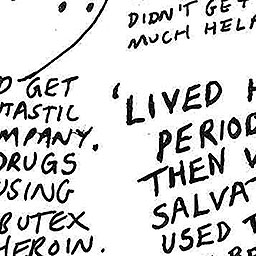 DIDN'T GET
MUCH HELP
D GET
TASTIC
MPANY.
DRUGS
USING
BUTEX
HEROIN.
'LIVED H
PERIOD
THEN
SALVAT
USED T